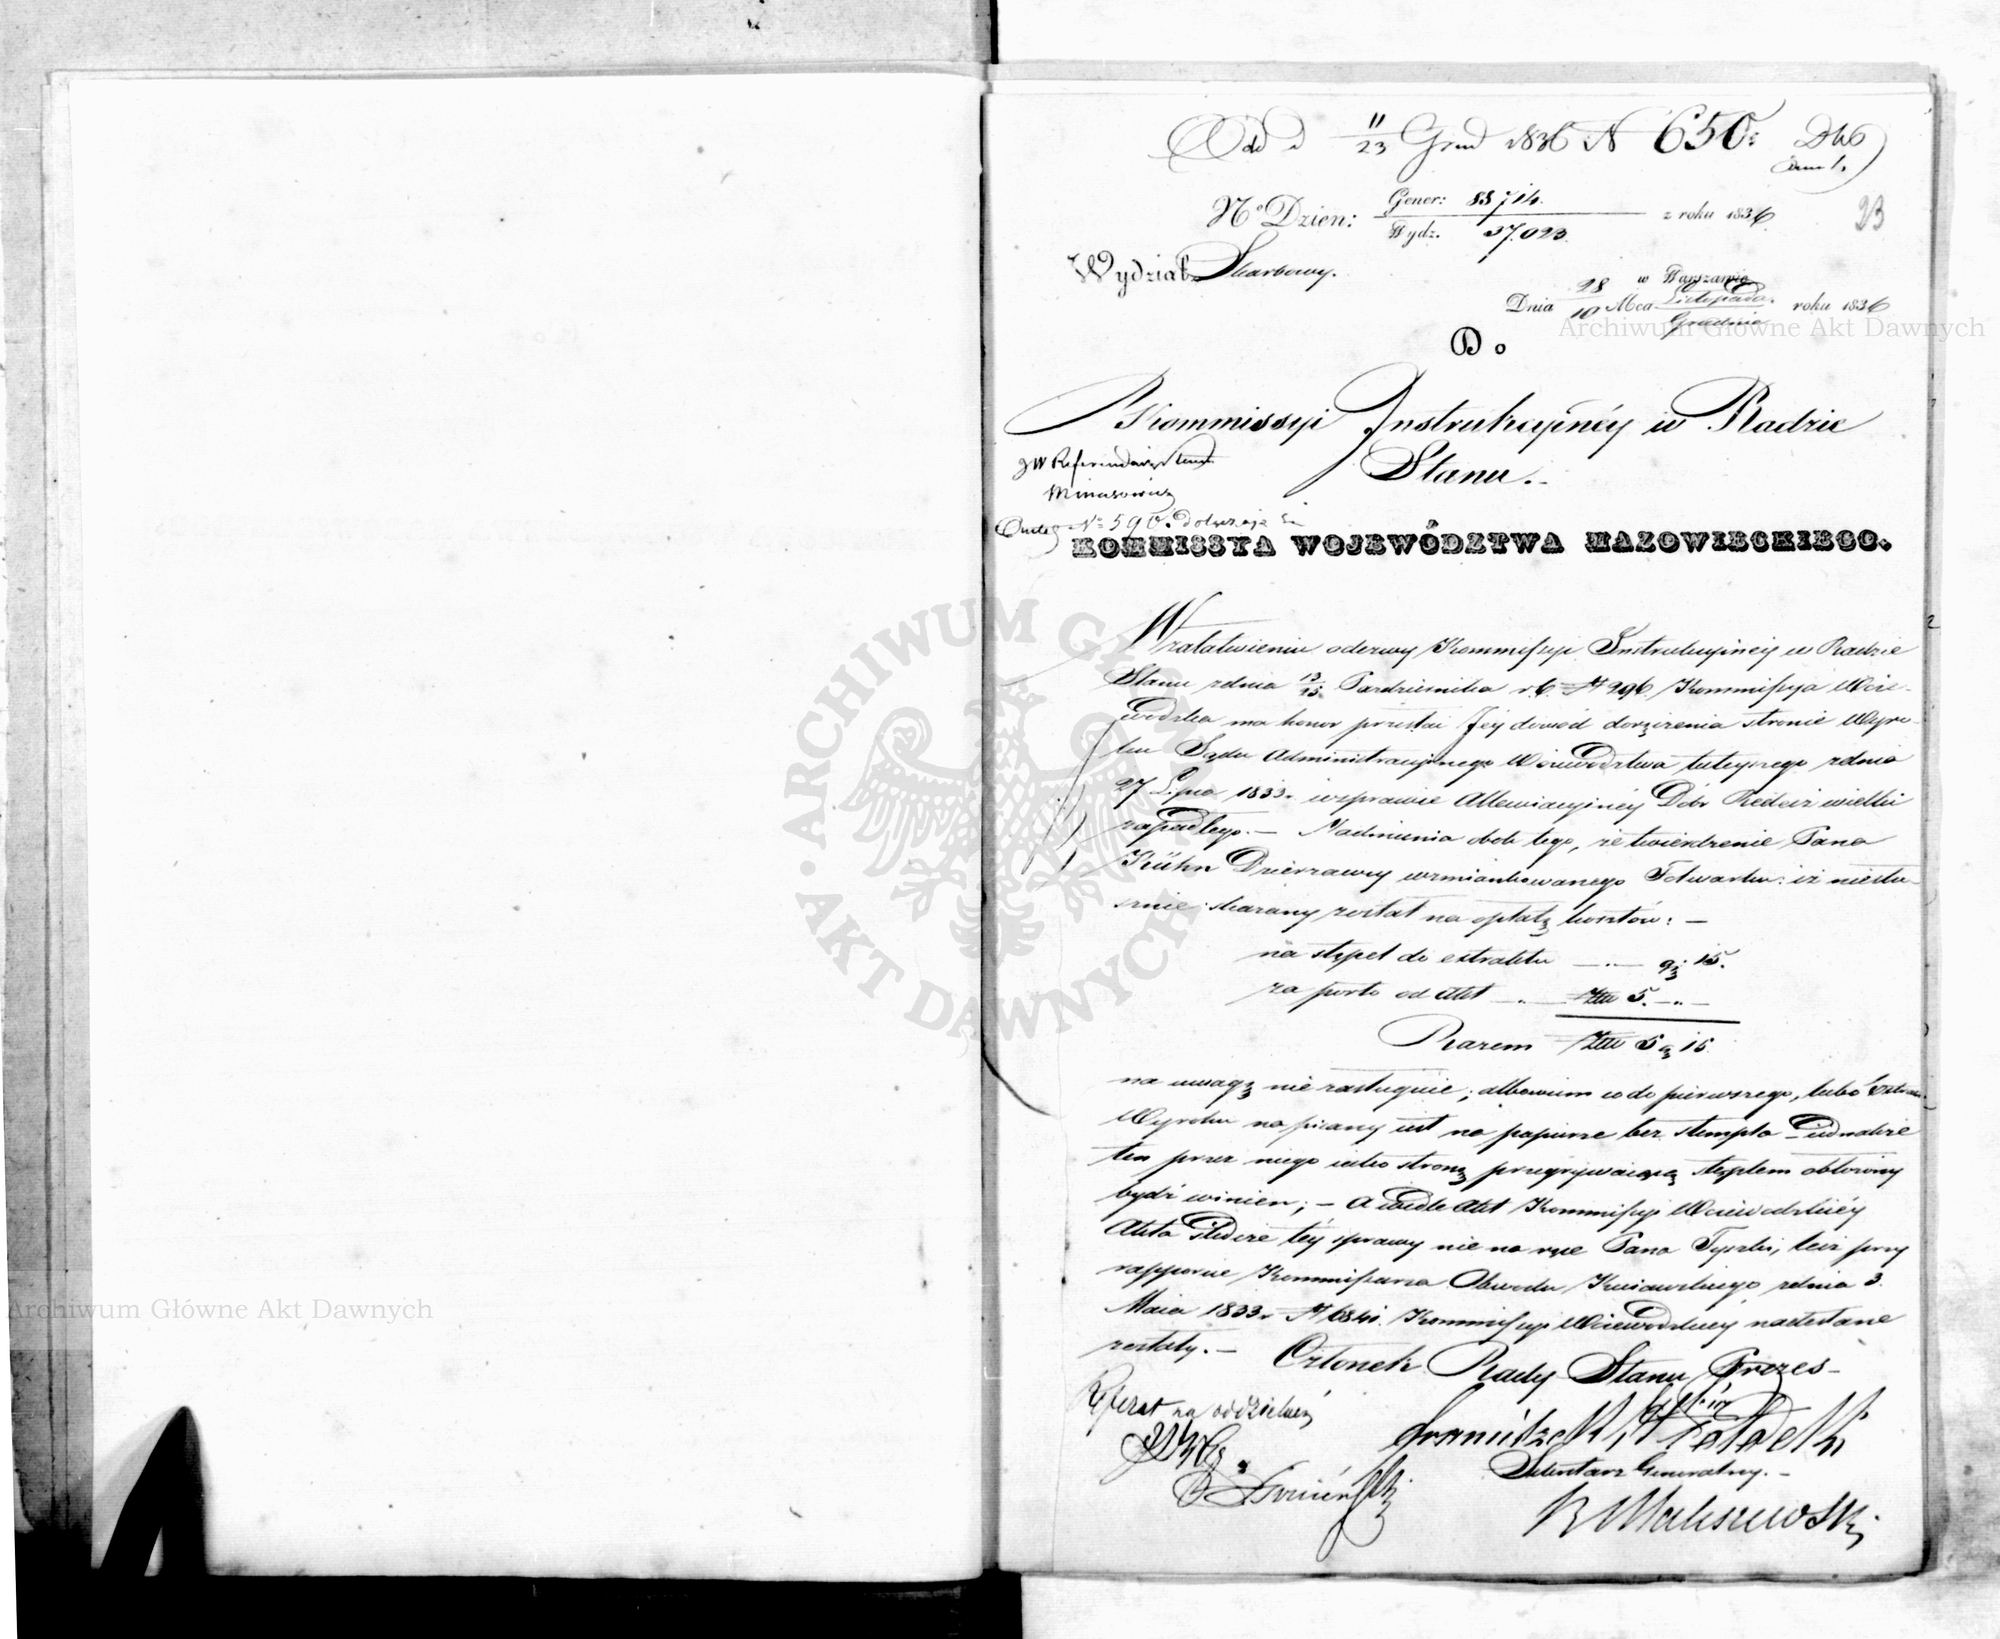 Odd d 11/23 Grud 1836 N 650:
N° Dzien: Gener: 88714. z roku 1836 23
Wydz. 37.023.
Wydział Skarbowy.
w Warszawie
Dnia 28/10 Mca Listopada/Grudnia roku 1836
Archiwum Główne Akt Dawnych
Do
Kommissyi Instrukcyinéy w Radzie
Stanu.
JW Referendarz Stanu
Minasowicz
N° 590. dołącza się
KOMMISSYA WOJEWÓDZTWA MAZOWIECKIEGO.
W załatwieniu odezwy Kommissyi Instrukcyinéy w Radzie
Stanu z dnia 13/15 Pazdziernika r.b. N 296 Kommissya Woie-
wodzka ma honor przesłać Jéy dowód doręczenia stronie Wyro-
ku Sądu Administracyinego Woiewodztwa tuteyszego z dnia
27 Lipca 1833 r. w sprawie Allewiacyinéy Dóbr wielki
zapadłego. — Nadmienia obok tego, że twierdzenie Pana
Kühn Dzierzawcy wzmiankowanego Folwarku: iż niesłu-
sznie skazany został na opłatę kosztów: —
na stępel do extraktu — " — gr 15.
za porto od Akt — " — Złp 5. — " —
Razem Złp 5 gr 15.
na uwagę nie zasługuie; albowiem co do pierwszego, lubo
Wyroku napisany iest na papierze bez stempla — iednakże
ten przez niego iako stronę przegrywaiącą stęplem obłożony
bydź winien; — a wedle Akt Kommissyi Woiewodzkiéy
Akta téy sprawy nie na ręce Pana Tyszki, lecz przy
rapporcie Kommissarza Obwodu Kuiawskiego z dnia 3.
Archiwum Główne Akt Dawnych
Maia 1833 r. N 6841. Kommissyi Woiewodzkiéy nadesłane
zostały. —
Członek Rady Stanu Prezes —
Referat na oddzielnéy
Sekretarz Generalny. —
ARCHIWUM GŁÓWNE AKT DAWNYCH